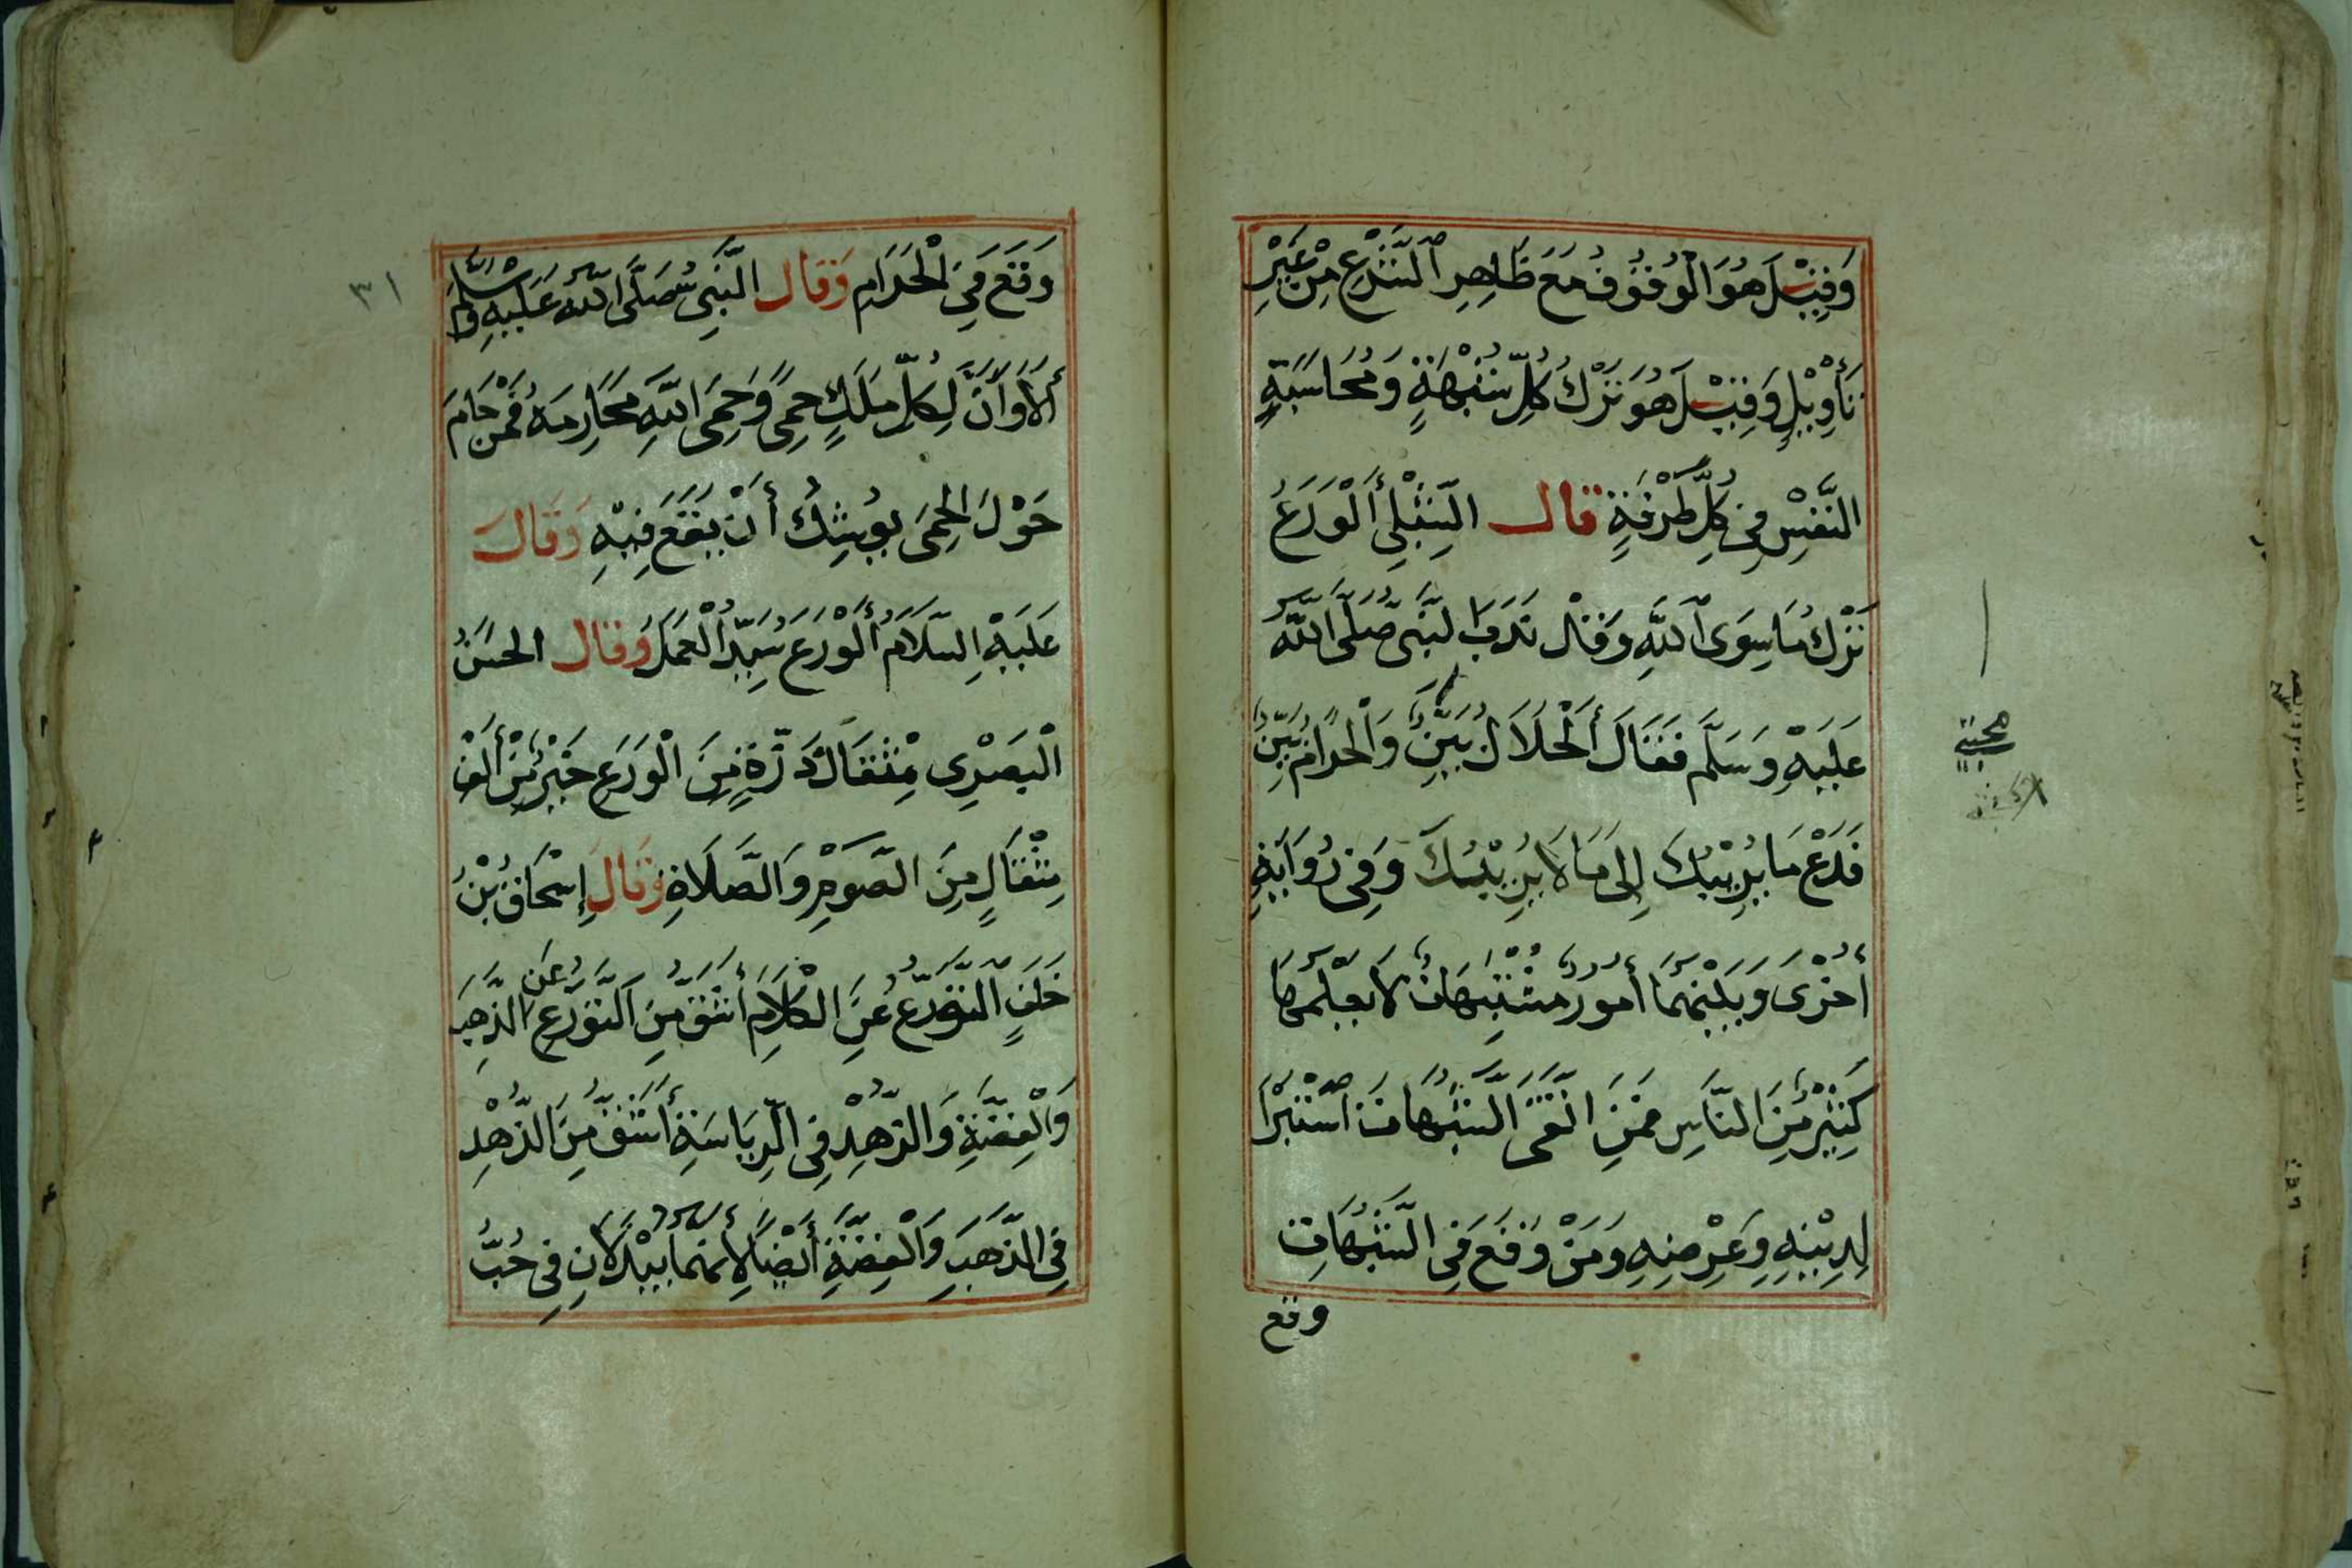 وَقِيْلَ هُوَ الْوُقُوْفُ مَعَ ظَاهِرِ الشَّرْعِ مِنْ غَيْرِ
تَأْوِيْلٍ وَقِيْلَ هُوَ تَرْكُ كُلِّ شُبْهَةٍ وَمُحَاسَبَةِ
النَّفْسِ فِي كُلِّ طَرْفَةٍ قال الشِّبْلِي أَلْوَرَعُ
تَرْكُ مَا سِوَى اللَّهِ وَقَالْ نَدَبَ النَّبِي صَلَّى اللَّه
عَلَيْهِ وَسَلَّم فَقَالَ أَلْحَلَالُ بَيِّنٌ وَالْحَرَامُ بَيِّنٌ
فَدَعْ مَا يُرِيْبُكَ إِلَى مَا لَا يُرِيْبُكَ وَفِي رُوَايَةٍ
أُخْرَى وَبَيْنَهُمَا أُمُورٌ مُشْتَبِهَاتٌ لَا يَعْلَمُهَا
كَثِيْرٌ مِنَ النَّاسِ فَمَنِ اتَّقَى الشُّبُهَاتِ اسْتَبْرَأَ
لِدِيْنِهِ وَعِرْضِهِ وَمَنْ وَقَعَ فِي الشُّبُهَاتِ
وقع
٣١
وَقَعَ فِي الْحَرَامِ وَقَال النَّبِيُّ صَلَّى اللَّه عَلَيْهِ وَسَلَّمَ
أَلَا وَاَنَّ لِكُلِّ مَلَكٍ حِمًى وَحِمَى اللَّهِ مَحَارِمَهُ فَمَنْ حَامَ
حَوْلَ الْحِمَى يُوشِكُ أَنْ يَقَعَ فِيْهِ وَقَالَ
عَلَيْهِ السَّلَامُ أَلْوَرَعُ سَيِّدُ الْعَمَلِ وَقَال الحَسَنُ
الْبَصْرِي مِثْقَالُ ذَرَّةٍ مِنَ الْوَرَعِ خَيْرٌ مِنْ أَلْفِ
مِثْقَالٍ مِنَ الصَّوْمِ وَالصَّلَاةِ وَقَالَ إِسْحَاقُ بْنُ
خَلَفٍ التَّوَرُّعُ عَنِ الْكَلَامِ أَشَقُّ مِنَ التَّوَرُّعِ عَنِ الذَّهَبِ
وَالْفِضَّةِ وَالزُّهْدُ فِي الرِّيَاسَةِ أَشَقُّ مِنَ الزُّهْدِ
فِي الذَّهَبِ وَالْفِضَّةِ أَيْضًا لِأَنَّهُمَا يَبْدُلَانِ فِي حُبِّ